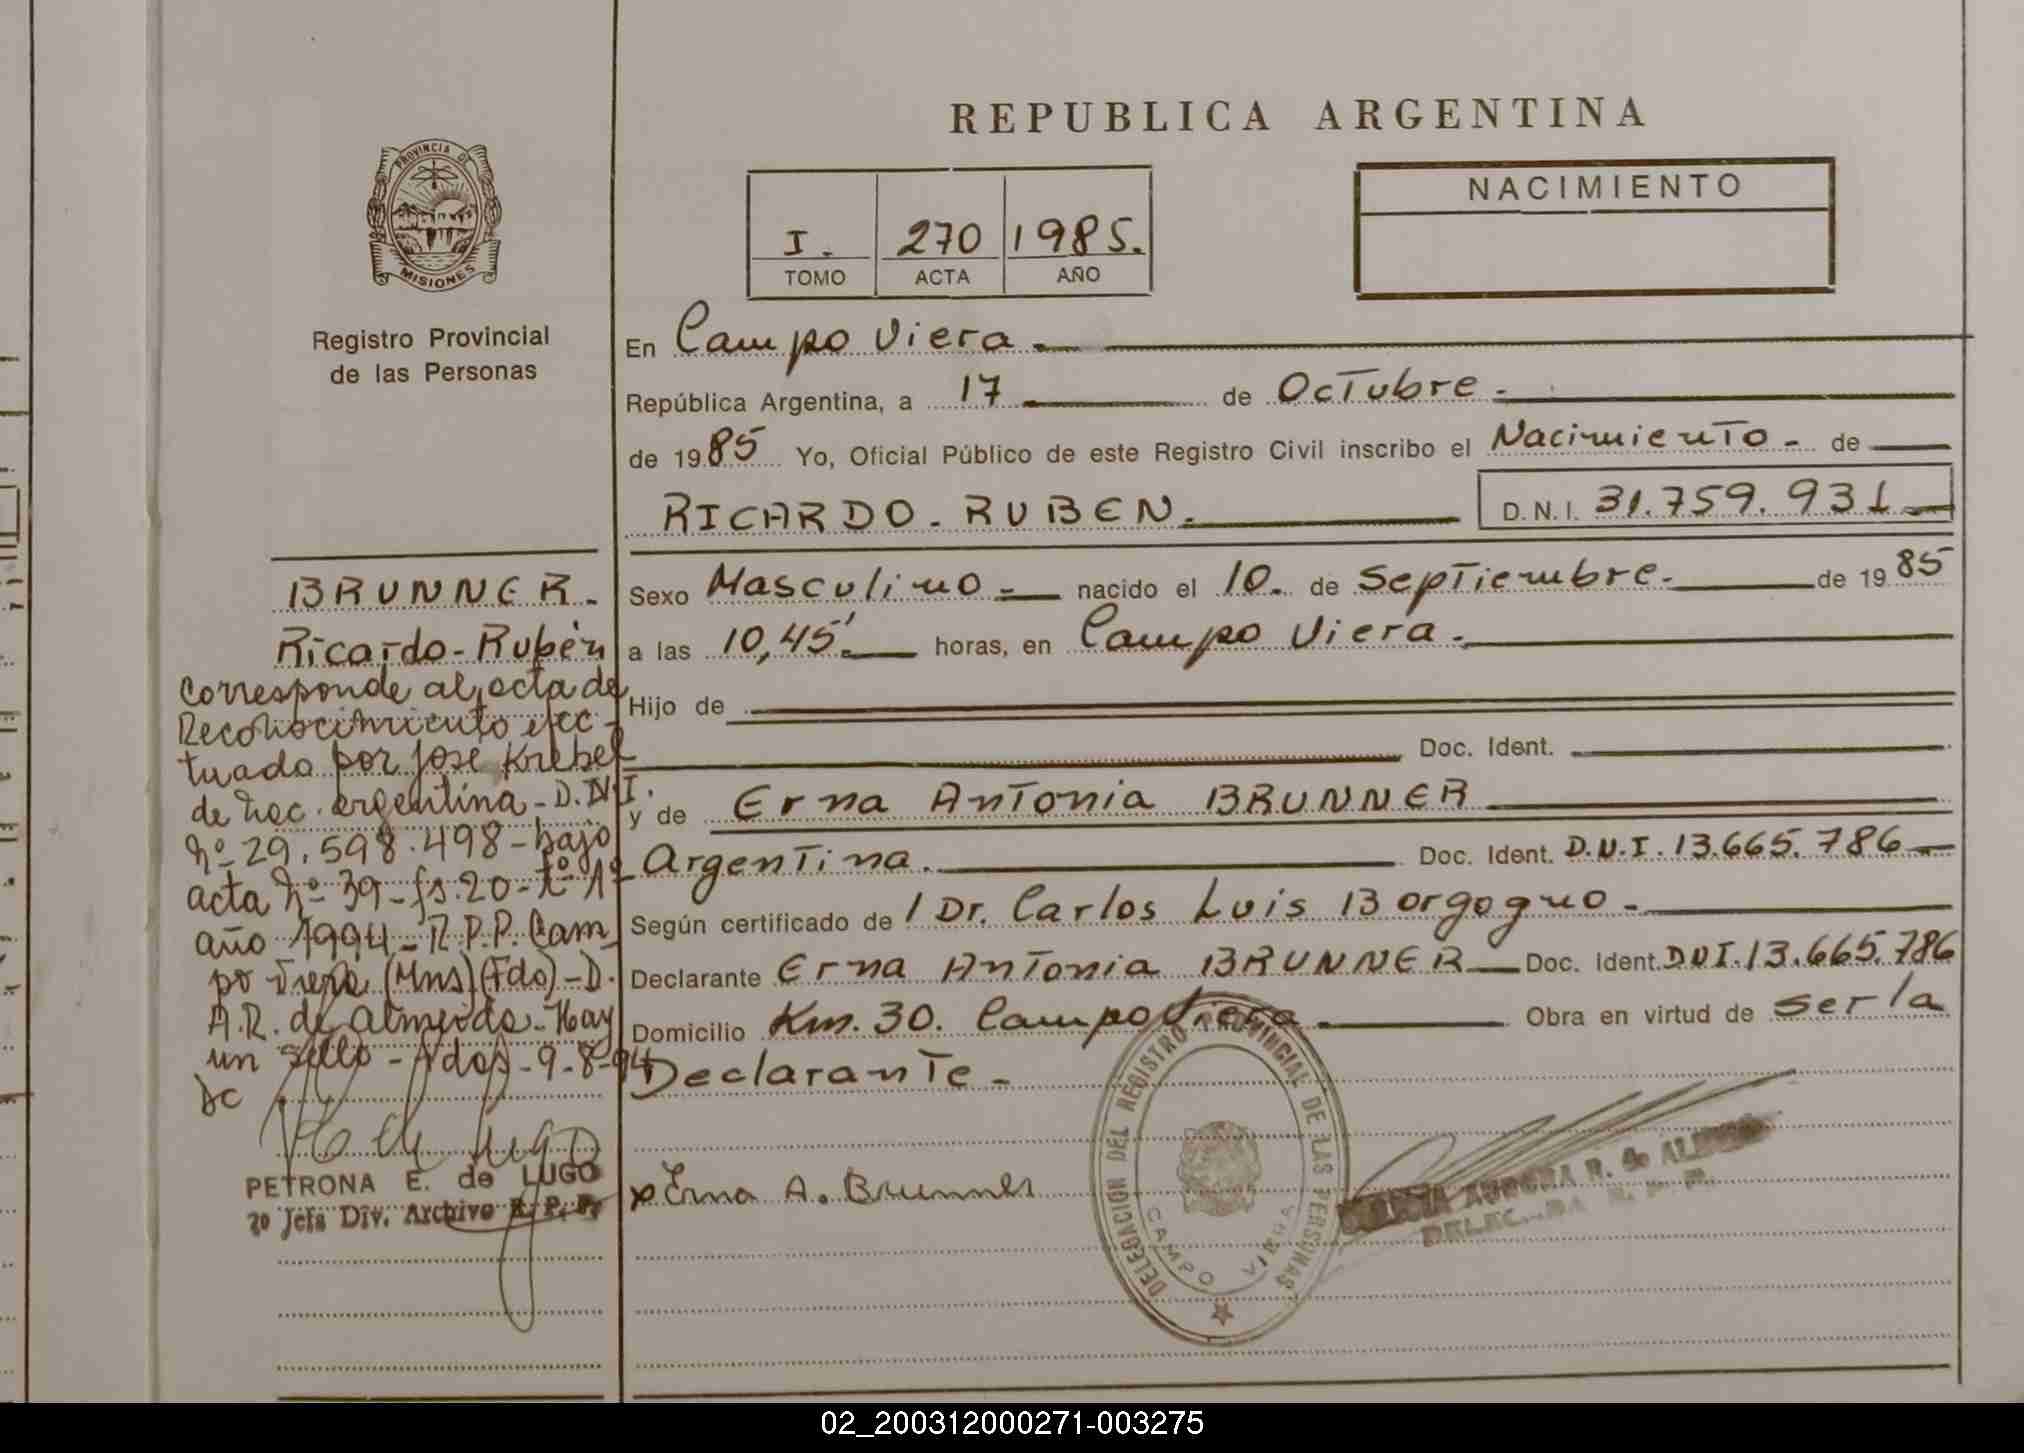 REPUBLICA ARGENTINA
PROVINCIA DE
MISIONES
Registro Provincial
de las Personas
I. 270 1985.
TOMO ACTA AÑO
NACIMIENTO
En Campo Viera
República Argentina, a 17 de Octubre
de 1985 Yo, Oficial Público de este Registro Civil inscribo el Nacimiento de
RICARDO-RUBEN. D.N.I. 31.759.931
Sexo Masculino nacido el 10. de Septiembre de 1985
a las 10,45' horas, en Campo Viera.
Hijo de
Doc. Ident.
y de Erna Antonia BRUNNER
Argentina. Doc. Ident. D.N.I. 13.665.786
Según certificado de / Dr. Carlos Luis Borgogno
Declarante Erna Antonia BRUNNER Doc. Ident. DNI. 13.665.786
Domicilio Km. 30. Campo Viera Obra en virtud de ser la
Declarante
x Erna A. Brunner
DELEGACION DEL REGISTRO PROVINCIAL DE LAS PERSONAS
CAMPO VIERA
AURORA R. de
R. P. P.
BRUNNER.
Ricardo-Rubén
Corresponde al acta de
Reconocimiento efec-
tuado por José Krebel
de nac. argentina-D.N.I.
nº 29.598.498-bajo
acta nº 39-fs.20-tº 1º
año 1994-R.P.P. Cam-
po Viera (Mns)(Fdo)-D.
A.R. de Almeida-Hay
un sello-Pdos-9-8-94
PETRONA E. de LUGO
2º Jefa Div. Archivo R. P. P.
02_200312000271-003275